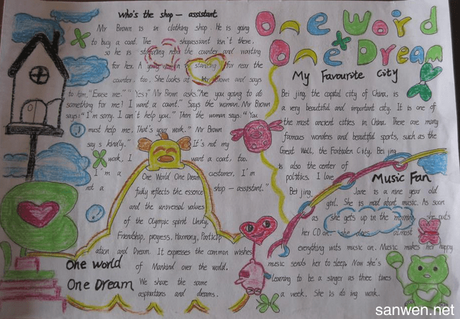 Who's the shop - assistant
Mr Brown is in clothing shop. He is going
to buy a coat. The shopassisant isn't there.
so he is standing near the counter and waiting
for her. A standing for near the
counter, too. She looks at Mr Brown and says
to him, "Excuse me." "Yes?" Mr Brown asks. "Are you going to do
something for me? I want a count." Says the woman. Mr Brown
says: "I'm sorry, I can't help you." Then the woman says: "You
must help me. That's your work." Mr Brown
say s kindly. It's not my
work, I want a coat, too.
I'm a customer. I'm
not a shop - assistant.
One World One Dream
fully reflects the essence
and the universal values
of the Olympic spirit Unity,
Friendship, progress, Harmony, Particip
ation and Dream. It expresses the common wishes
of Mankind over the world.
We share the same
aspirations and dreams.
One World
One Dream
One Word
One Dream
My Favourite City
Bei jing, the capital city of China, is
a very beautiful and important city. It is one of
the most ancient cities in China. There are many
famous wonders and beautiful sports, such as the
Great Wall, the Forbiden City. Bei jing
is also the center of
politics. I love
Bei jing
Music Fan
Jane is a nine year old
girl. She is mad about music. As soon
as she gets up in the morning, she puts
her CD on. She does almost
everything with music on. Music makes her happy
music sends her to sleep. Now she's
learning to be a singer as three times
a week. She is do ing work.
sanwen.net